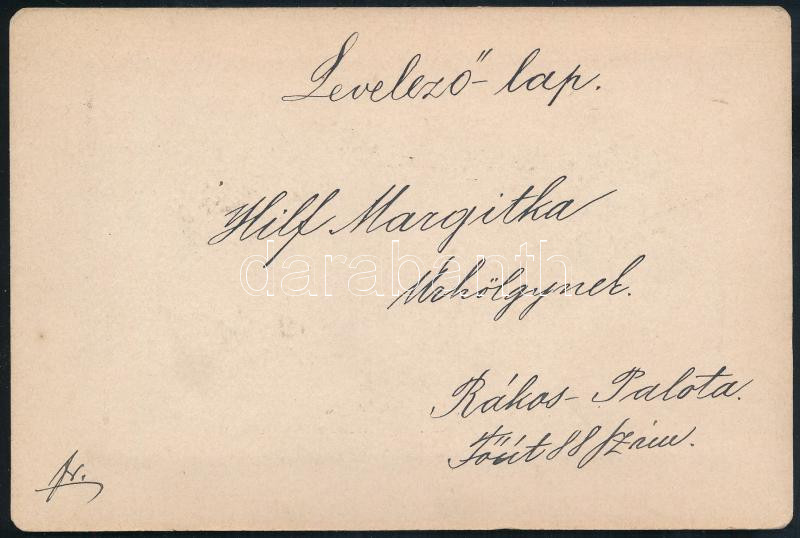 Levelező-lap.
Hilf Margitka
darabanth
Úrhölgynek.
Rákos-Palota.
Főút 88 szám.
fr.